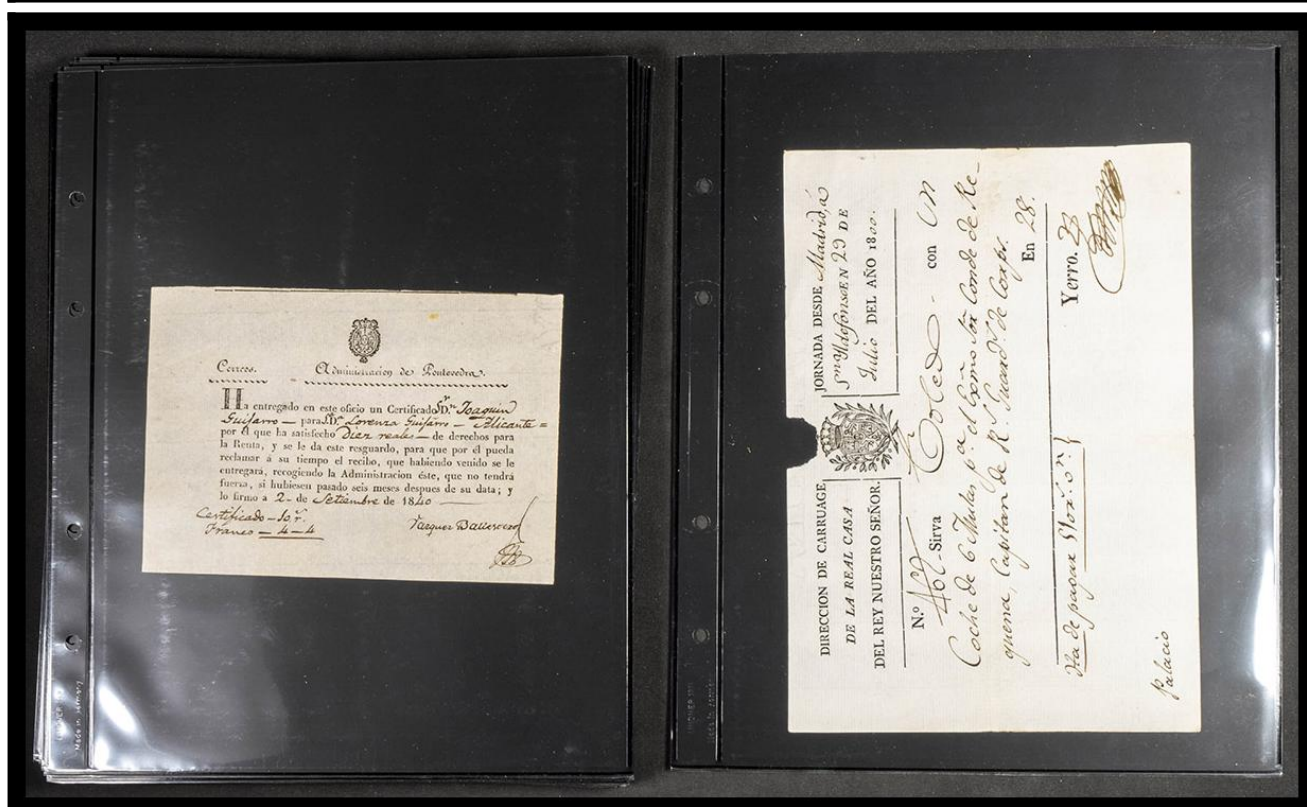 Correos. Administracion de Pontevedra.
Ha entregado en este oficio un Certificado Sr. Dn. Joaquin
Guijarro — para S.Da. Lorenza Guijarro — Alicante =
por el que ha satisfecho Diez reales — de derechos para
la Renta, y se le da este resguardo, para que por él pueda
reclamar á su tiempo el recibo, que habiendo venido se le
entregará, recogiendo la Administracion éste, que no tendrá
fuerza, si hubiesen pasado seis meses despues de su data; y
lo firmo a 2 - de Setiembre de 1840
Certificado — 10 r.
Franco — 4 — 4
Vazquez Ballesteros
Made in Germany
DIRECCION DE CARRUAGE
DE LA REAL CASA
DEL REY NUESTRO SEÑOR.
JORNADA DESDE Madrid, á
Sn. Yldefonso EN 29 DE
Julio DEL AÑO 1800.
N.º 462 - Sirva Toledo - con un
Coche de 6 Mulas pa. el Exmo Sor. Conde de Re-
quena, Capitan de Rs. Guards. de Corps.
En 28.
Ha de pagar
Yerro. 23
Palacio